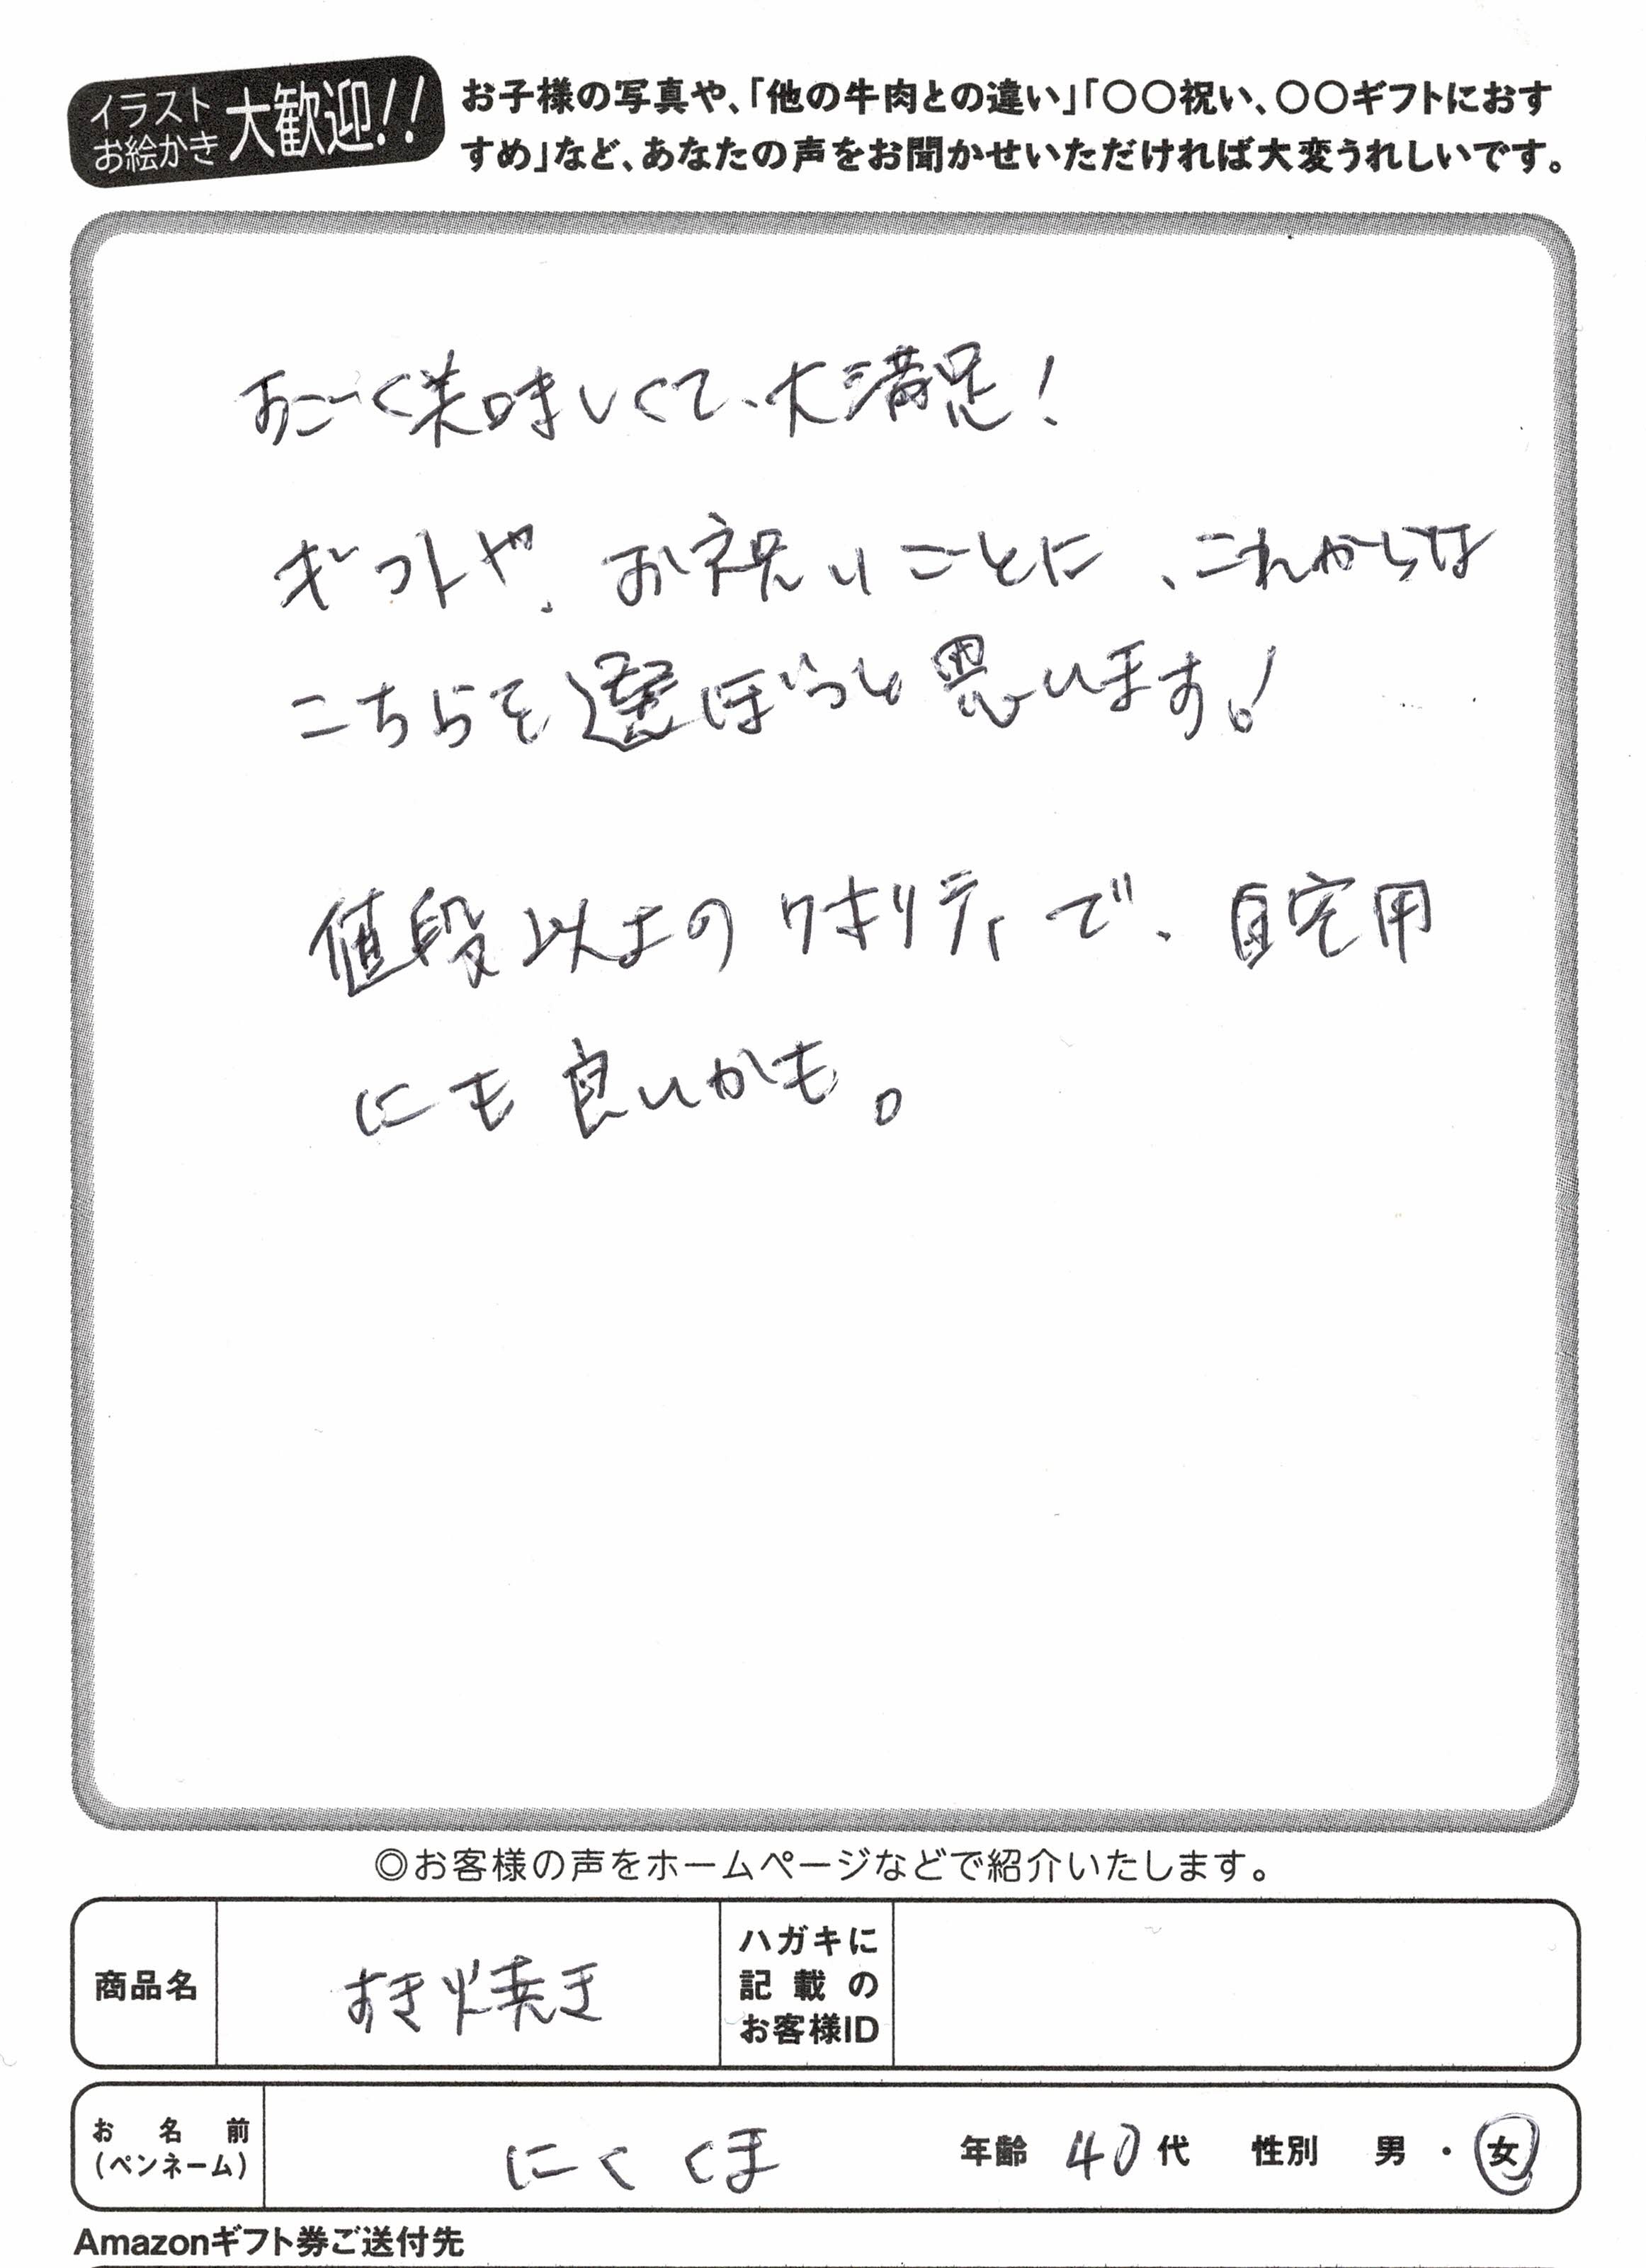 イラスト
お絵かき
大歓迎!!
お子様の写真や、「他の牛肉との違い」「〇〇祝い、〇〇ギフトにおす
すめ」など、あなたの声をお聞かせいただければ大変うれしいです。
すごく美味しくて、大満足!
ギフトや、お祝いごとに、これからは
こちらを選ぼうと思います!
値段以上のクオリティで、自宅用
にも良いかも。
◎お客様の声をホームページなどで紹介いたします。
商品名
すき焼き
ハガキに
記載の
お客様ID
お名前
(ペンネーム)
にくくま
年齢 40代 性別 男・女
Amazonギフト券ご送付先